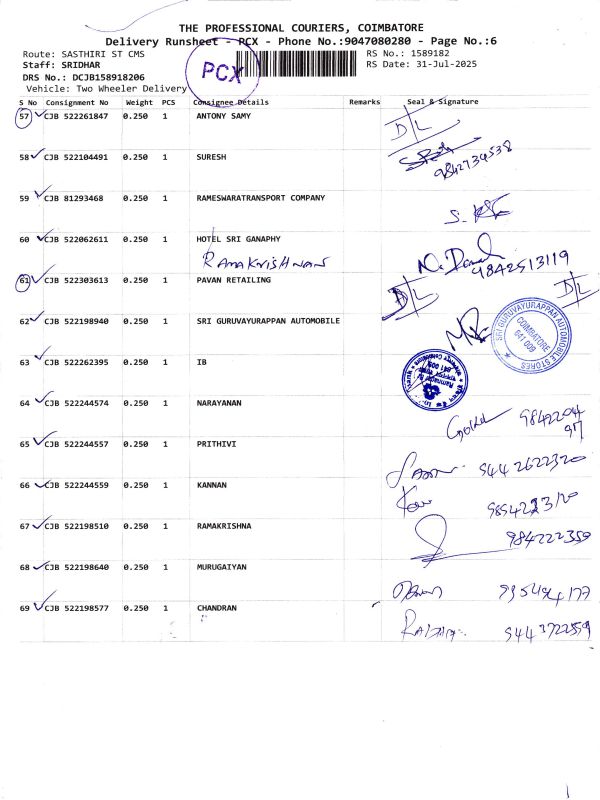 THE PROFESSIONAL COURIERS, COIMBATORE
Delivery Runsheet - PCX - Phone No.:9047080280 - Page No.:6
Route: SASTHIRI ST CMS RS No.: 1589182
Staff: SRIDHAR RS Date: 31-Jul-2025
PCX
DRS No.: DCJB158918206
Vehicle: Two Wheeler Delivery
S No Consignment No Weight PCS Consignee Details Remarks Seal & Signature
57 CJB 522261847 0.250 1 ANTONY SAMY D/L
58 CJB 522104491 0.250 1 SURESH
9842734538
59 CJB 81293468 0.250 1 RAMESWARATRANSPORT COMPANY
60 CJB 522062611 0.250 1 HOTEL SRI GANAPHY
RAMAKRISHNAN 9842513119
61 CJB 522303613 0.250 1 PAVAN RETAILING D/L D/L
62 CJB 522198940 0.250 1 SRI GURUVAYURAPPAN AUTOMOBILE
SRI GURUVAYURAPPAN AUTOMOBILE STORES
COIMBATORE
641 009
63 CJB 522262395 0.250 1 IB
64 CJB 522244574 0.250 1 NARAYANAN
9842204
97
65 CJB 522244557 0.250 1 PRITHIVI
9442622320
66 CJB 522244559 0.250 1 KANNAN
67 CJB 522198510 0.250 1 RAMAKRISHNA
984222359
68 CJB 522198640 0.250 1 MURUGAIYAN
69 CJB 522198577 0.250 1 CHANDRAN
9443722559